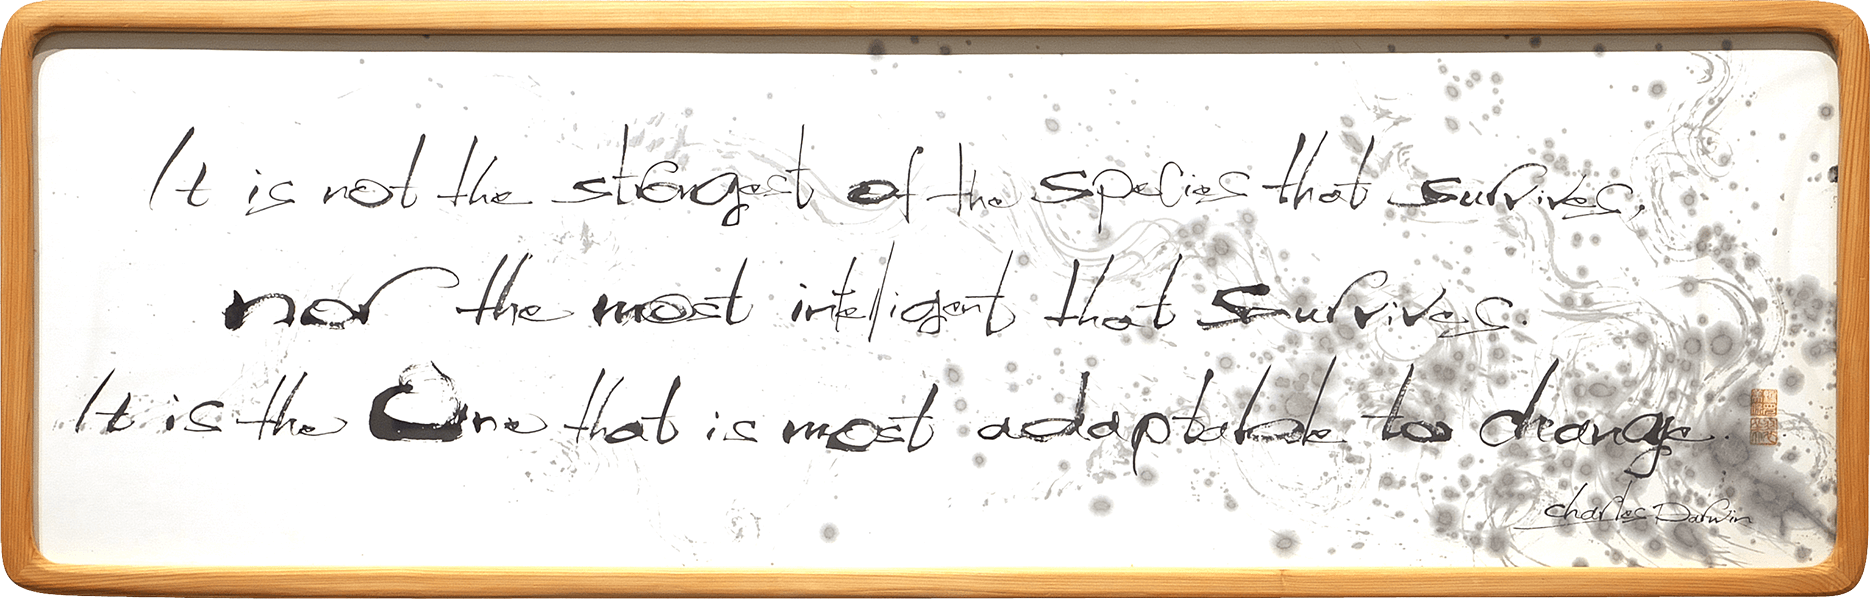 It is not the strongest of the species that survives,
nor the most intelligent that survives.
It is the One that is most adaptable to change.
Charles Darwin